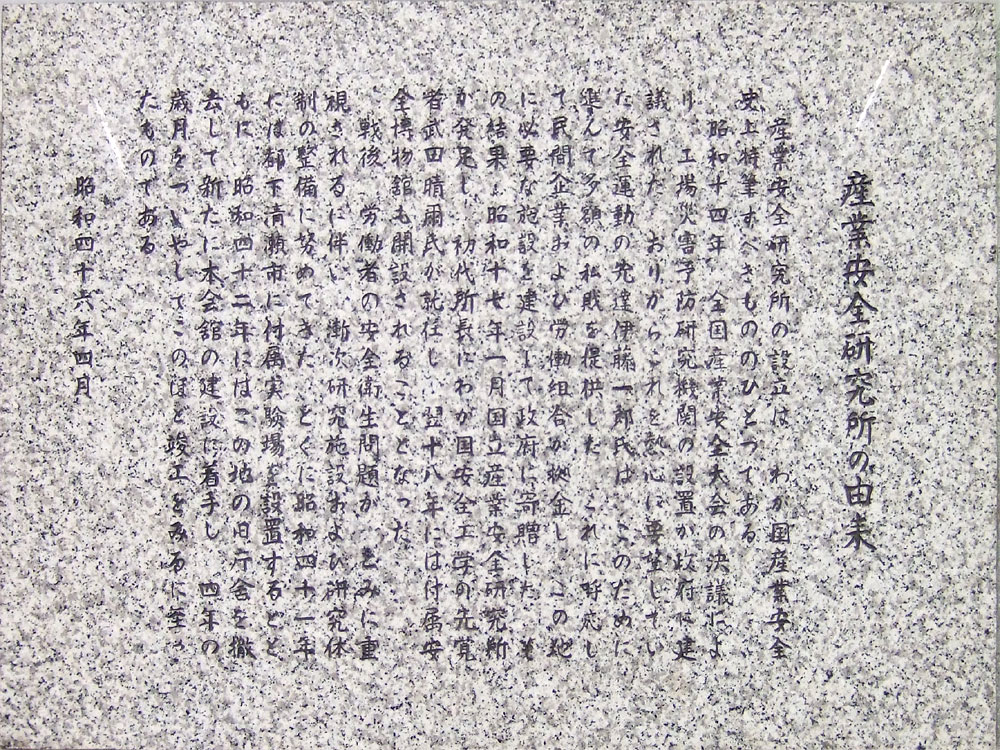 産業安全研究所の由来
産業安全研究所の設立は、わが国産業安全
史上特筆すべきもののひとつである。
昭和十四年、全国産業安全大会の決議によ
り、工場災害予防研究機関の設置が政府に建
議された。おりからこれを熱心に要望してい
た安全運動の先達伊藤一郎氏は、このために
進んで多額の私財を提供した。これに呼応し
て、民間企業および労働組合が拠金し、この地
に必要な施設を建設して政府に寄贈した。そ
の結果、昭和十七年一月国立産業安全研究所
が発足し、初代所長にわが国安全工学の先覚
者武田晴爾氏が就任し、翌十八年には付属安
全博物館も開設されることとなった。
戦後、労働者の安全衛生問題が、とみに重
視されるに伴い、漸次研究施設および研究体
制の整備に努めてきた。とくに昭和四十一年
には都下清瀬市に付属実験場を設置するとと
もに、昭和四十二年にはこの地の旧庁舎を撤
去して新たに本会館の建設に着手し、四年の
歳月をついやしてこのほど竣工をみるに至っ
たものである。
昭和四十六年四月